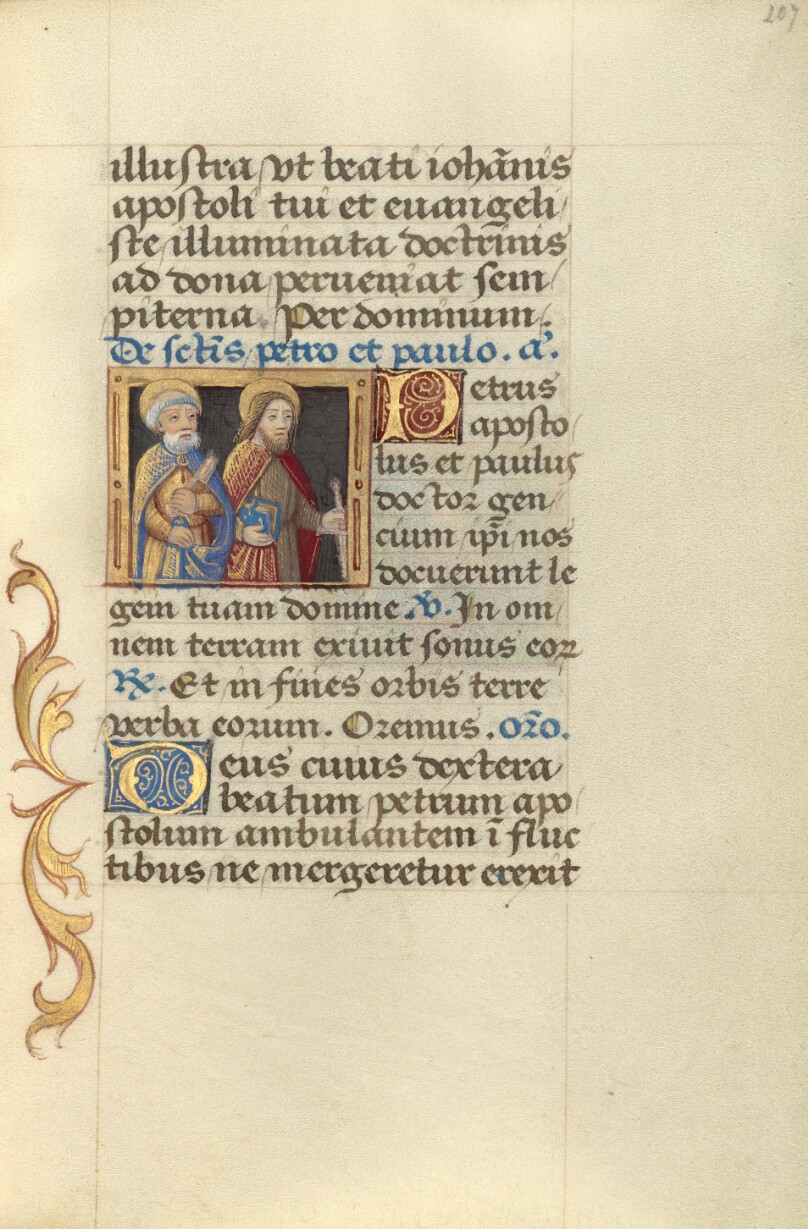 207
illustra vt beati iohãnis
apostoli tui et euangeli/
ste illuminata doctrinis
ad dona perueniat sem/
piterna. Per dominum.
De sctis petro et paulo. a͂.
Petrus
aposto/
lus et paulus
doctor gen/
cium ip̃i nos
docuerunt le
gem tuam domine. V. In om/
nem terram exiuit sonus eoꝝ
R. Et in fines orbis terre
verba eorum. Oremus. or̃o.
Deus cuius dextera
beatum petrum apo/
stolum ambulantem ĩ fluc
tibus ne mergeretur erexit